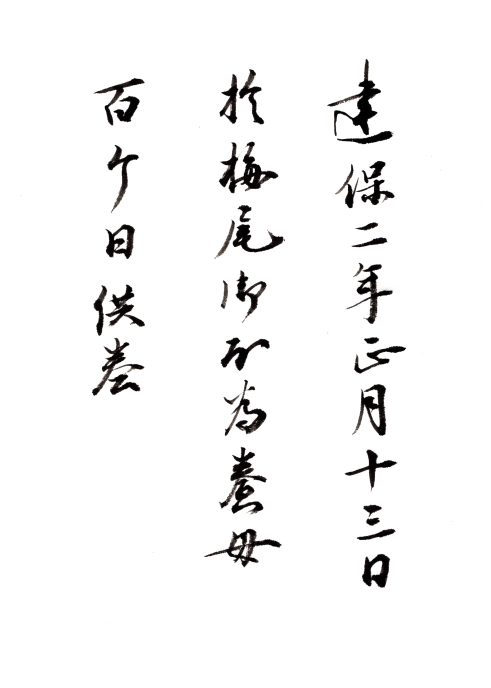 建保二年正月十三日
於梅尾御所為養母
百ケ日供養